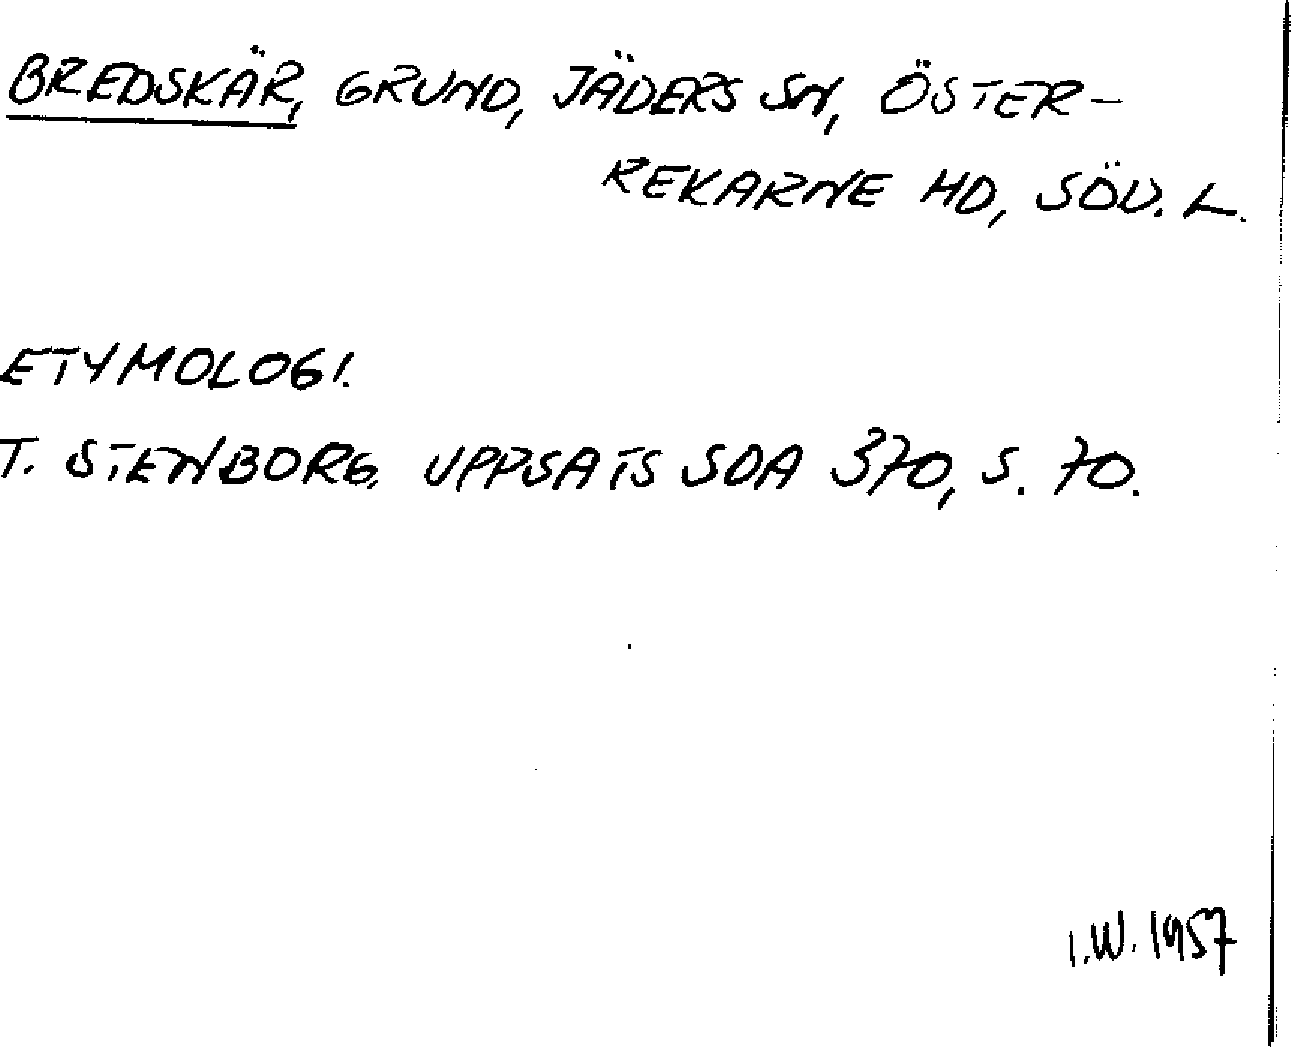 BREDSKÄR, GRUND, JÄDERS SN, ÖSTER-
REKARNE HD, SÖD. L.
ETYMOLOGI.
T. STENBORG. UPPSATS SOA 370, S. 70.
I.W. 1957